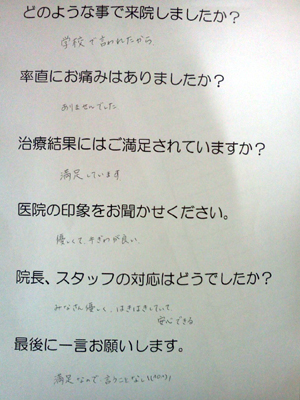 どのような事で来院しましたか？
学校で言われたから
率直にお痛みはありましたか？
ありませんでした
治療結果にはご満足されていますか？
満足しています
医院の印象をお聞かせください。
優しくて、手ぎわが良い
院長、スタッフの対応はどうでしたか？
みなさん優しく、はきはきしていて
安心できる
最後に一言お願いします。
満足なので言うことない